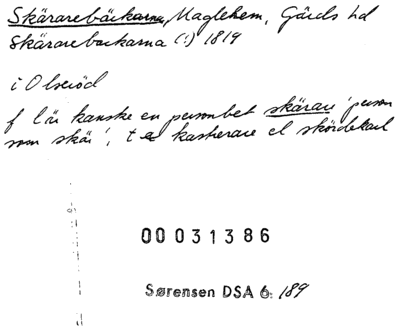 Skärarebäckarna, Maglehem, Gärds hd
Skärarebackarna (:) 1819
i Olseröd
f l är kanske en personbet skärare 'person
som skär', t ex kastrerare el skördekarl
00 031386
Sørensen DSA 6. 189